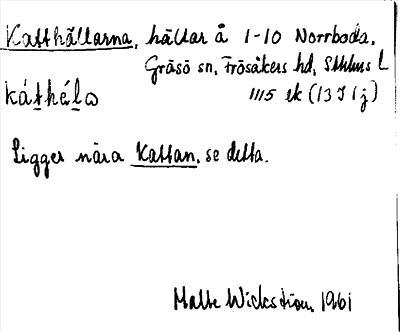 Katthällarna, hällar å 1-10 Norrboda,
Gräsö sn, Frösåkers hd, Sthlms l
káthélɷ 1115 ek (13 I 1j)
Ligger nära Kattan, se detta.
Malte Wickström, 1961